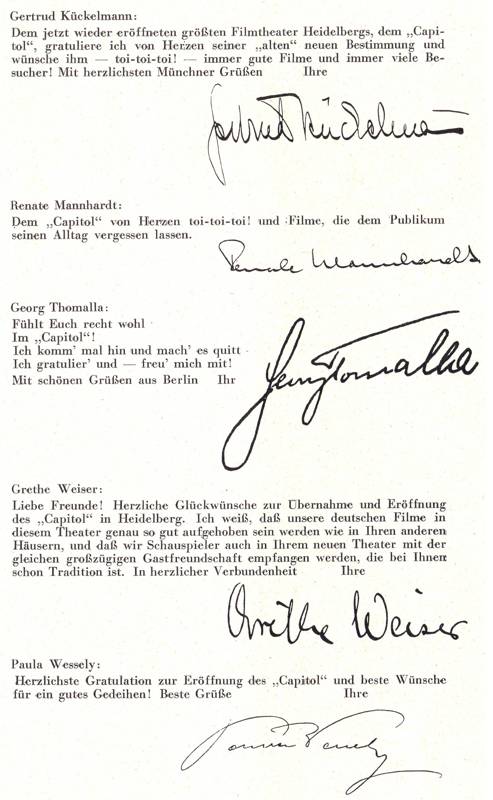 Gertrud Kückelmann:
Dem jetzt wieder eröffneten größten Filmtheater Heidelbergs, dem „Capi-
tol“, gratuliere ich von Herzen seiner „alten“ neuen Bestimmung und
wünsche ihm — toi-toi-toi! — immer gute Filme und immer viele Be-
sucher! Mit herzlichsten Münchner Grüßen Ihre
Gertrud Kückelmann
Renate Mannhardt:
Dem „Capitol“ von Herzen toi-toi-toi! und Filme, die dem Publikum
seinen Alltag vergessen lassen.
Renate Mannhardt
Georg Thomalla:
Fühlt Euch recht wohl
Im „Capitol“!
Ich komm’ mal hin und mach’ es quitt
Ich gratulier’ und — freu’ mich mit!
Mit schönen Grüßen aus Berlin Ihr
Georg Thomalla
Grethe Weiser:
Liebe Freunde! Herzliche Glückwünsche zur Übernahme und Eröffnung
des „Capitol“ in Heidelberg. Ich weiß, daß unsere deutschen Filme in
diesem Theater genau so gut aufgehoben sein werden wie in Ihren anderen
Häusern, und daß wir Schauspieler auch in Ihrem neuen Theater mit der
gleichen großzügigen Gastfreundschaft empfangen werden, die bei Ihnen
schon Tradition ist. In herzlicher Verbundenheit Ihre
Grethe Weiser
Paula Wessely:
Herzlichste Gratulation zur Eröffnung des „Capitol“ und beste Wünsche
für ein gutes Gedeihen! Beste Grüße Ihre
Paula Wessely